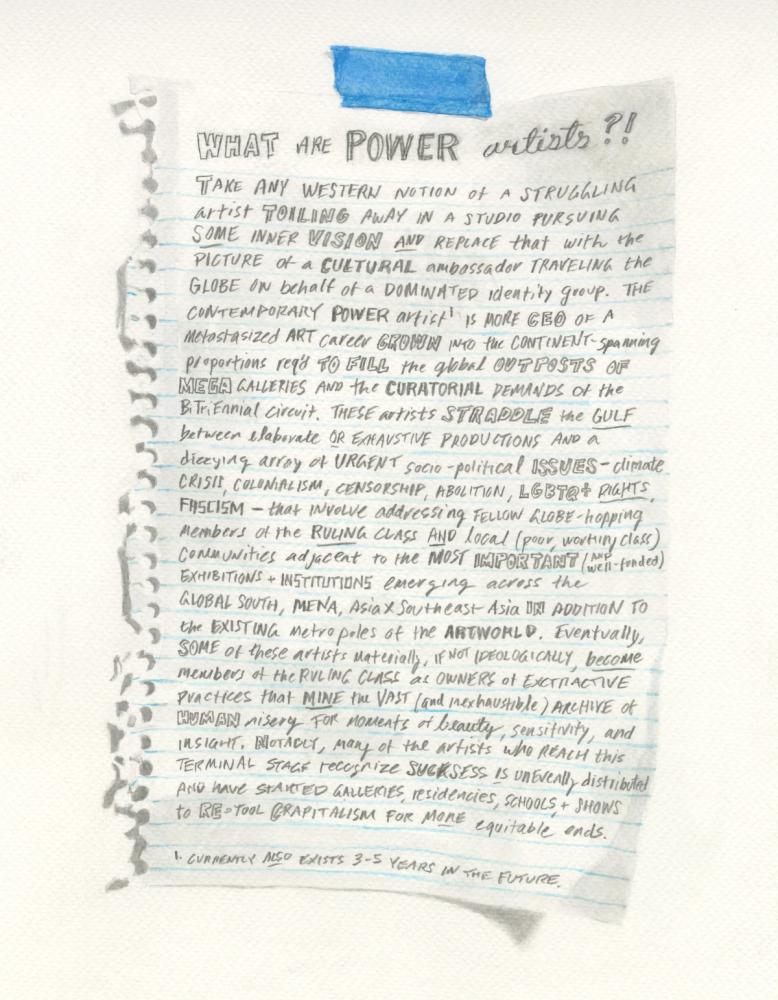 WHAT ARE POWER artists?!
TAKE ANY WESTERN NOTION of A STRUGGLING
artist TOILING AWAY IN A STUDIO PURSUING
SOME INNER VISION AND REPLACE that with the
PICTURE of a CULTURAL ambassador TRAVELING the
GLOBE ON behalf of a DOMINATED identity group. THE
CONTEMPORARY POWER artist¹ IS MORE CEO OF A
metastasized ART career GROWN INTO the CONTINENT-spanning
proportions req'd TO FILL the global OUTPOSTS OF
MEGA GALLERIES AND the CURATORIAL DEMANDS of the
BiTriEnnial circuit. THESE artists STRADDLE the GULF
between elaborate OR EXHAUSTIVE PRODUCTIONS AND a
dizzying array of URGENT socio-political ISSUES - climate
CRISIS, COLONIALISM, CENSORSHIP, ABOLITION, LGBTQ+ RIGHTS,
FASCISM - that INVOLVE addressing FELLOW GLOBE-hopping
members of the RULING CLASS AND local (poor, working class)
communities adjacent to the MOST IMPORTANT (AND well-funded)
EXHIBITIONS + INSTITUTIONS emerging across the
GLOBAL SOUTH, MENA, Asia & Southeast Asia IN ADDITION TO
the EXISTING metropoles of the ARTWORLD. Eventually,
SOME of these artists materially, IF NOT IDEOLOGICALLY, become
members of the RULING CLASS as OWNERS of EXCTRACTIVE
practices that MINE the VAST (and inexhaustible) ARCHIVE of
HUMAN misery FOR moments of beauty, sensitivity, and
INSIGHT. NOTABLY, many of the artists who REACH this
TERMINAL STAGE recognize SUCKSESS IS UNEVENLY distributed
AND HAVE STARTED GALLERIES, residencies, SCHOOLS, + SHOWS
to RE-TOOL CRAPITALISM FOR MORE equitable ends.
1. CURRENTLY ALSO EXISTS 3-5 YEARS IN THE FUTURE.